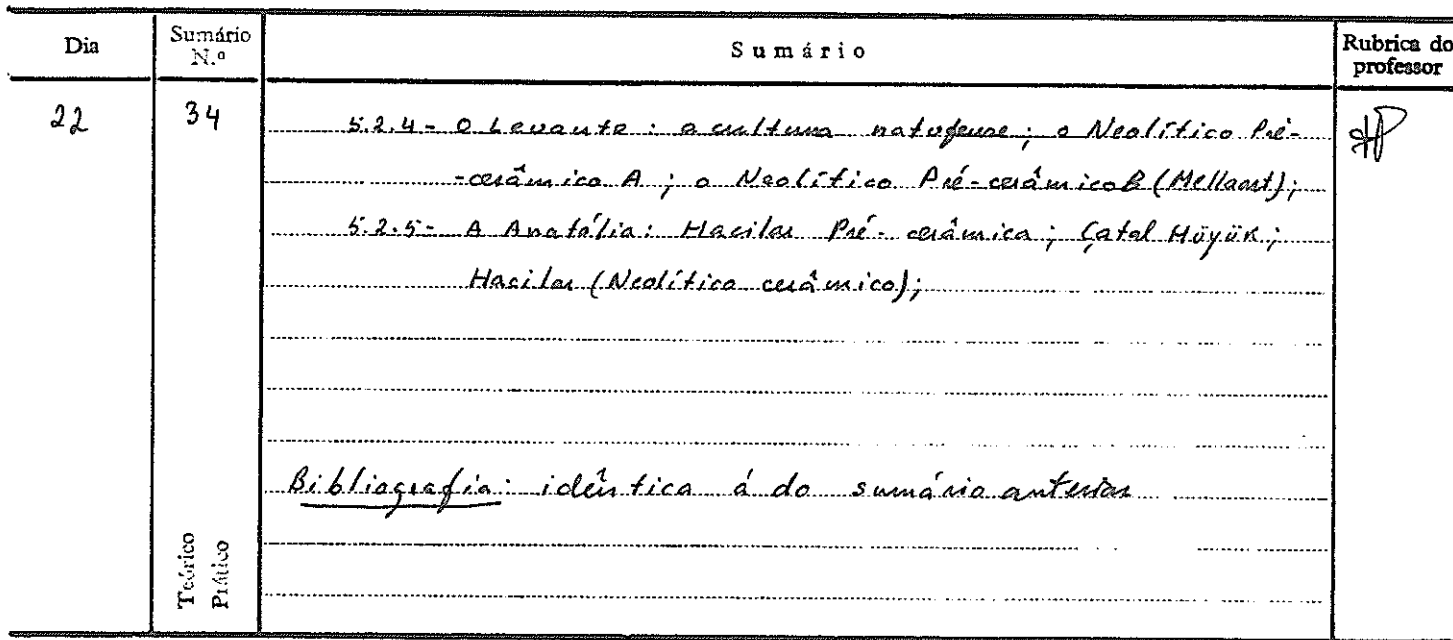 Dia Sumário N.º Sumário Rubrica do professor
22 34 5.2.4- O Levante: a cultura natufense; o Neolítico Pré-
-cerâmico A; o Neolítico Pré-cerâmico B (Mellaart);
5.2.5- A Anatólia: Hacilar Pré-cerâmica; Çatal Hüyük;
Hacilar (Neolítico cerâmico);
Bibliografia: idêntica á do sumário anterior
Teórico
Prático